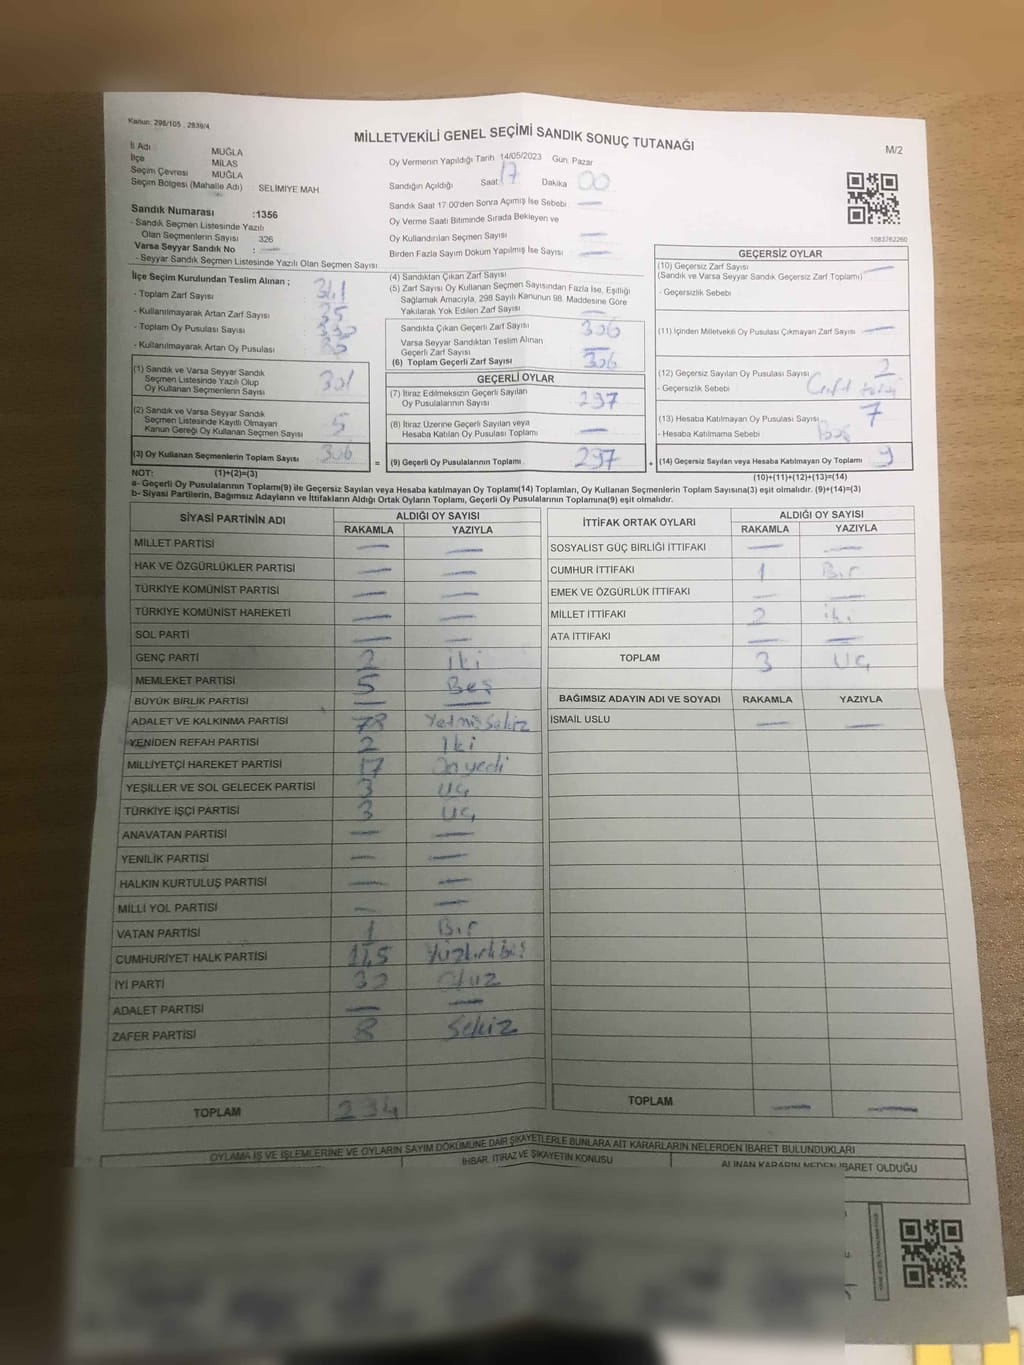 Kanun: 298/105 , 2839/4
MİLLETVEKİLİ GENEL SEÇİMİ SANDIK SONUÇ TUTANAĞI
M/2
İl Adı MUĞLA
İlçe MİLAS
Seçim Çevresi MUĞLA
Seçim Bölgesi (Mahalle Adı) SELİMİYE MAH
Oy Vermenin Yapıldığı Tarih 14/05/2023 Gün: Pazar
Sandığın Açıldığı Saat 17 Dakika 00
Sandık Saat 17:00'den Sonra Açımış İse Sebebi —
Oy Verme Saati Bitiminde Sırada Bekleyen ve
Oy Kullandırılan Seçmen Sayısı —
Birden Fazla Sayım Döküm Yapılmış İse Sayısı —
1083762260
Sandık Numarası :1356
- Sandık Seçmen Listesinde Yazılı
Olan Seçmenlerin Sayısı 326
Varsa Seyyar Sandık No : —
- Seyyar Sandık Seçmen Listesinde Yazılı Olan Seçmen Sayısı
İlçe Seçim Kurulundan Teslim Alınan ;
- Toplam Zarf Sayısı 341
- Kullanılmayarak Artan Zarf Sayısı 35
- Toplam Oy Pusulası Sayısı
- Kullanılmayarak Artan Oy Pusulası
(1) Sandık ve Varsa Seyyar Sandık
Seçmen Listesinde Yazılı Olup
Oy Kullanan Seçmenlerin Sayısı 301
(2) Sandık ve Varsa Seyyar Sandık
Seçmen Listesinde Kayıtlı Olmayan
Kanun Gereği Oy Kullanan Seçmen Sayısı 5
(3) Oy Kullanan Seçmenlerin Toplam Sayısı 306
(4) Sandıktan Çıkan Zarf Sayısı
(5) Zarf Sayısı Oy Kullanan Seçmen Sayısından Fazla İse, Eşitliği
Sağlamak Amacıyla, 298 Sayılı Kanunun 98. Maddesine Göre
Yakılarak Yok Edilen Zarf Sayısı —
Sandıkta Çıkan Geçerli Zarf Sayısı 306
Varsa Seyyar Sandıktan Teslim Alınan
Geçerli Zarf Sayısı —
(6) Toplam Geçerli Zarf Sayısı 306
GEÇERLİ OYLAR
(7) İtiraz Edilmeksizin Geçerli Sayılan
Oy Pusulalarının Sayısı 297
(8) İtiraz Üzerine Geçerli Sayılan veya
Hesaba Katılan Oy Pusulası Toplamı —
= (9) Geçerli Oy Pusulalarının Toplamı 297
GEÇERSİZ OYLAR
(10) Geçersiz Zarf Sayısı —
(Sandık ve Varsa Seyyar Sandık Geçersiz Zarf Toplamı)
- Geçersizlik Sebebi
(11) İçinden Milletvekili Oy Pusulası Çıkmayan Zarf Sayısı —
(12) Geçersiz Sayılan Oy Pusulası Sayısı 2
- Geçersizlik Sebebi Çift
(13) Hesaba Katılmayan Oy Pusulası Sayısı 7
- Hesaba Katılmama Sebebi Boş
+ (14) Geçersiz Sayılan veya Hesaba Katılmayan Oy Toplamı 9
NOT: (1)+(2)=(3)
(10)+(11)+(12)+(13)=(14)
a- Geçerli Oy Pusulalarının Toplamı(9) ile Geçersiz Sayılan veya Hesaba katılmayan Oy Toplam(14) Toplamları, Oy Kullanan Seçmenlerin Toplam Sayısına(3) eşit olmalıdır. (9)+(14)=(3)
b- Siyasi Partilerin, Bağımsız Adayların ve İttifakların Aldığı Ortak Oyların Toplamı, Geçerli Oy Pusulalarının Toplamına(9) eşit olmalıdır.
SİYASİ PARTİNİN ADI
ALDIĞI OY SAYISI
RAKAMLA YAZIYLA
MİLLET PARTİSİ — —
HAK VE ÖZGÜRLÜKLER PARTİSİ — —
TÜRKİYE KOMÜNİST PARTİSİ — —
TÜRKİYE KOMÜNİST HAREKETİ — —
SOL PARTİ — —
GENÇ PARTİ 2 iki
MEMLEKET PARTİSİ 5 Beş
BÜYÜK BİRLİK PARTİSİ — —
ADALET VE KALKINMA PARTİSİ 78 Yetmişsekiz
YENİDEN REFAH PARTİSİ 2 İki
MİLLİYETÇİ HAREKET PARTİSİ 17 Onyedi
YEŞİLLER VE SOL GELECEK PARTİSİ 3 Üç
TÜRKİYE İŞÇİ PARTİSİ 3 Üç
ANAVATAN PARTİSİ — —
YENİLİK PARTİSİ — —
HALKIN KURTULUŞ PARTİSİ — —
MİLLİ YOL PARTİSİ — —
VATAN PARTİSİ 1 Bir
CUMHURİYET HALK PARTİSİ 145 Yüzkırkbeş
İYİ PARTİ 30 Otuz
ADALET PARTİSİ — —
ZAFER PARTİSİ 8 Sekiz
TOPLAM 294
İTTİFAK ORTAK OYLARI
ALDIĞI OY SAYISI
RAKAMLA YAZIYLA
SOSYALİST GÜÇ BİRLİĞİ İTTİFAKI — —
CUMHUR İTTİFAKI 1 Bir
EMEK VE ÖZGÜRLÜK İTTİFAKI — —
MİLLET İTTİFAKI 2 iki
ATA İTTİFAKI — —
TOPLAM 3 Üç
BAĞIMSIZ ADAYIN ADI VE SOYADI RAKAMLA YAZIYLA
İSMAİL USLU — —
TOPLAM — —
OYLAMA İŞ VE İŞLEMLERİNE VE OYLARIN SAYIM DÖKÜMÜNE DAİR ŞİKAYETLERLE BUNLARA AİT KARARLARIN NELERDEN İBARET BULUNDUKLARI
İHBAR, İTİRAZ VE ŞİKAYETİN KONUSU
ALINAN KARARIN NEDEN İBARET OLDUĞU